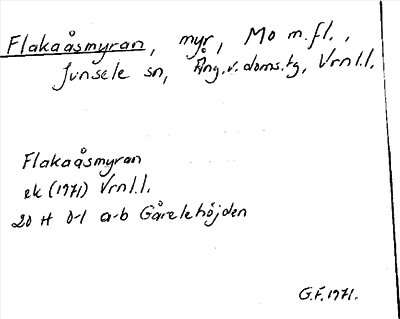 Flakaåsmyran, myr, Mo m.fl.,
Junsele sn, Ång.v.doms.tg, Vrnl.l.
Flakaåsmyran
ek (1971) Vrnl.l.
20 H 0-1 a-b Gårelehöjden
G.F. 1971.